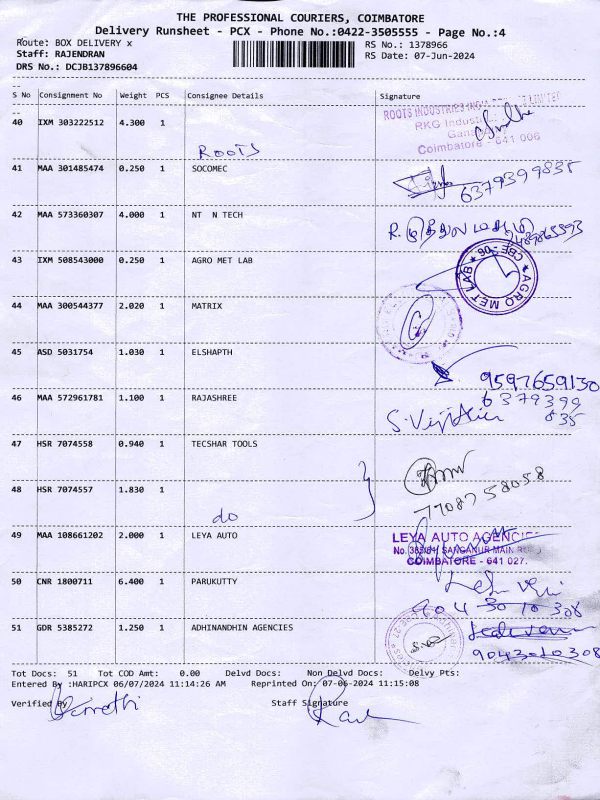 THE PROFESSIONAL COURIERS, COIMBATORE
Delivery Runsheet - PCX - Phone No.:0422-3505555 - Page No.:4
Route: BOX DELIVERY x
RS No.: 1378966
Staff: RAJENDRAN
RS Date: 07-Jun-2024
DRS No.: DCJB137896604
S No Consignment No Weight PCS Consignee Details Signature
40 IXM 303222512 4.300 1
ROOTS
ROOTS INDUSTRIES INDIA LIMITED
RKG Indust
Gana
Coimbatore - 641 006
41 MAA 301485474 0.250 1 SOCOMEC
6379399835
42 MAA 573360307 4.000 1 NT N TECH
43 IXM 508543000 0.250 1 AGRO MET LAB
AGRO MET LAB * CBE-06 *
44 MAA 300544377 2.020 1 MATRIX
45 ASD 5031754 1.030 1 ELSHAPTH
9597659130
46 MAA 572961781 1.100 1 RAJASHREE
6379399
835
47 HSR 7074558 0.940 1 TECSHAR TOOLS
48 HSR 7074557 1.830 1
do
7708758058
49 MAA 108661202 2.000 1 LEYA AUTO
LEYA AUTO AGENCIES
SANGANUR MAIN
COIMBATORE - 641 027.
50 CNR 1800711 6.400 1 PARUKUTTY
904 30 10 308
51 GDR 5385272 1.250 1 ADHINANDHIN AGENCIES
9043010308
Tot Docs: 51 Tot COD Amt: 0.00 Delvd Docs: Non Delvd Docs: Delvy Pts:
Entered By :HARIPCX 06/07/2024 11:14:26 AM Reprinted On: 07-06-2024 11:15:08
Verified By
Staff Signature